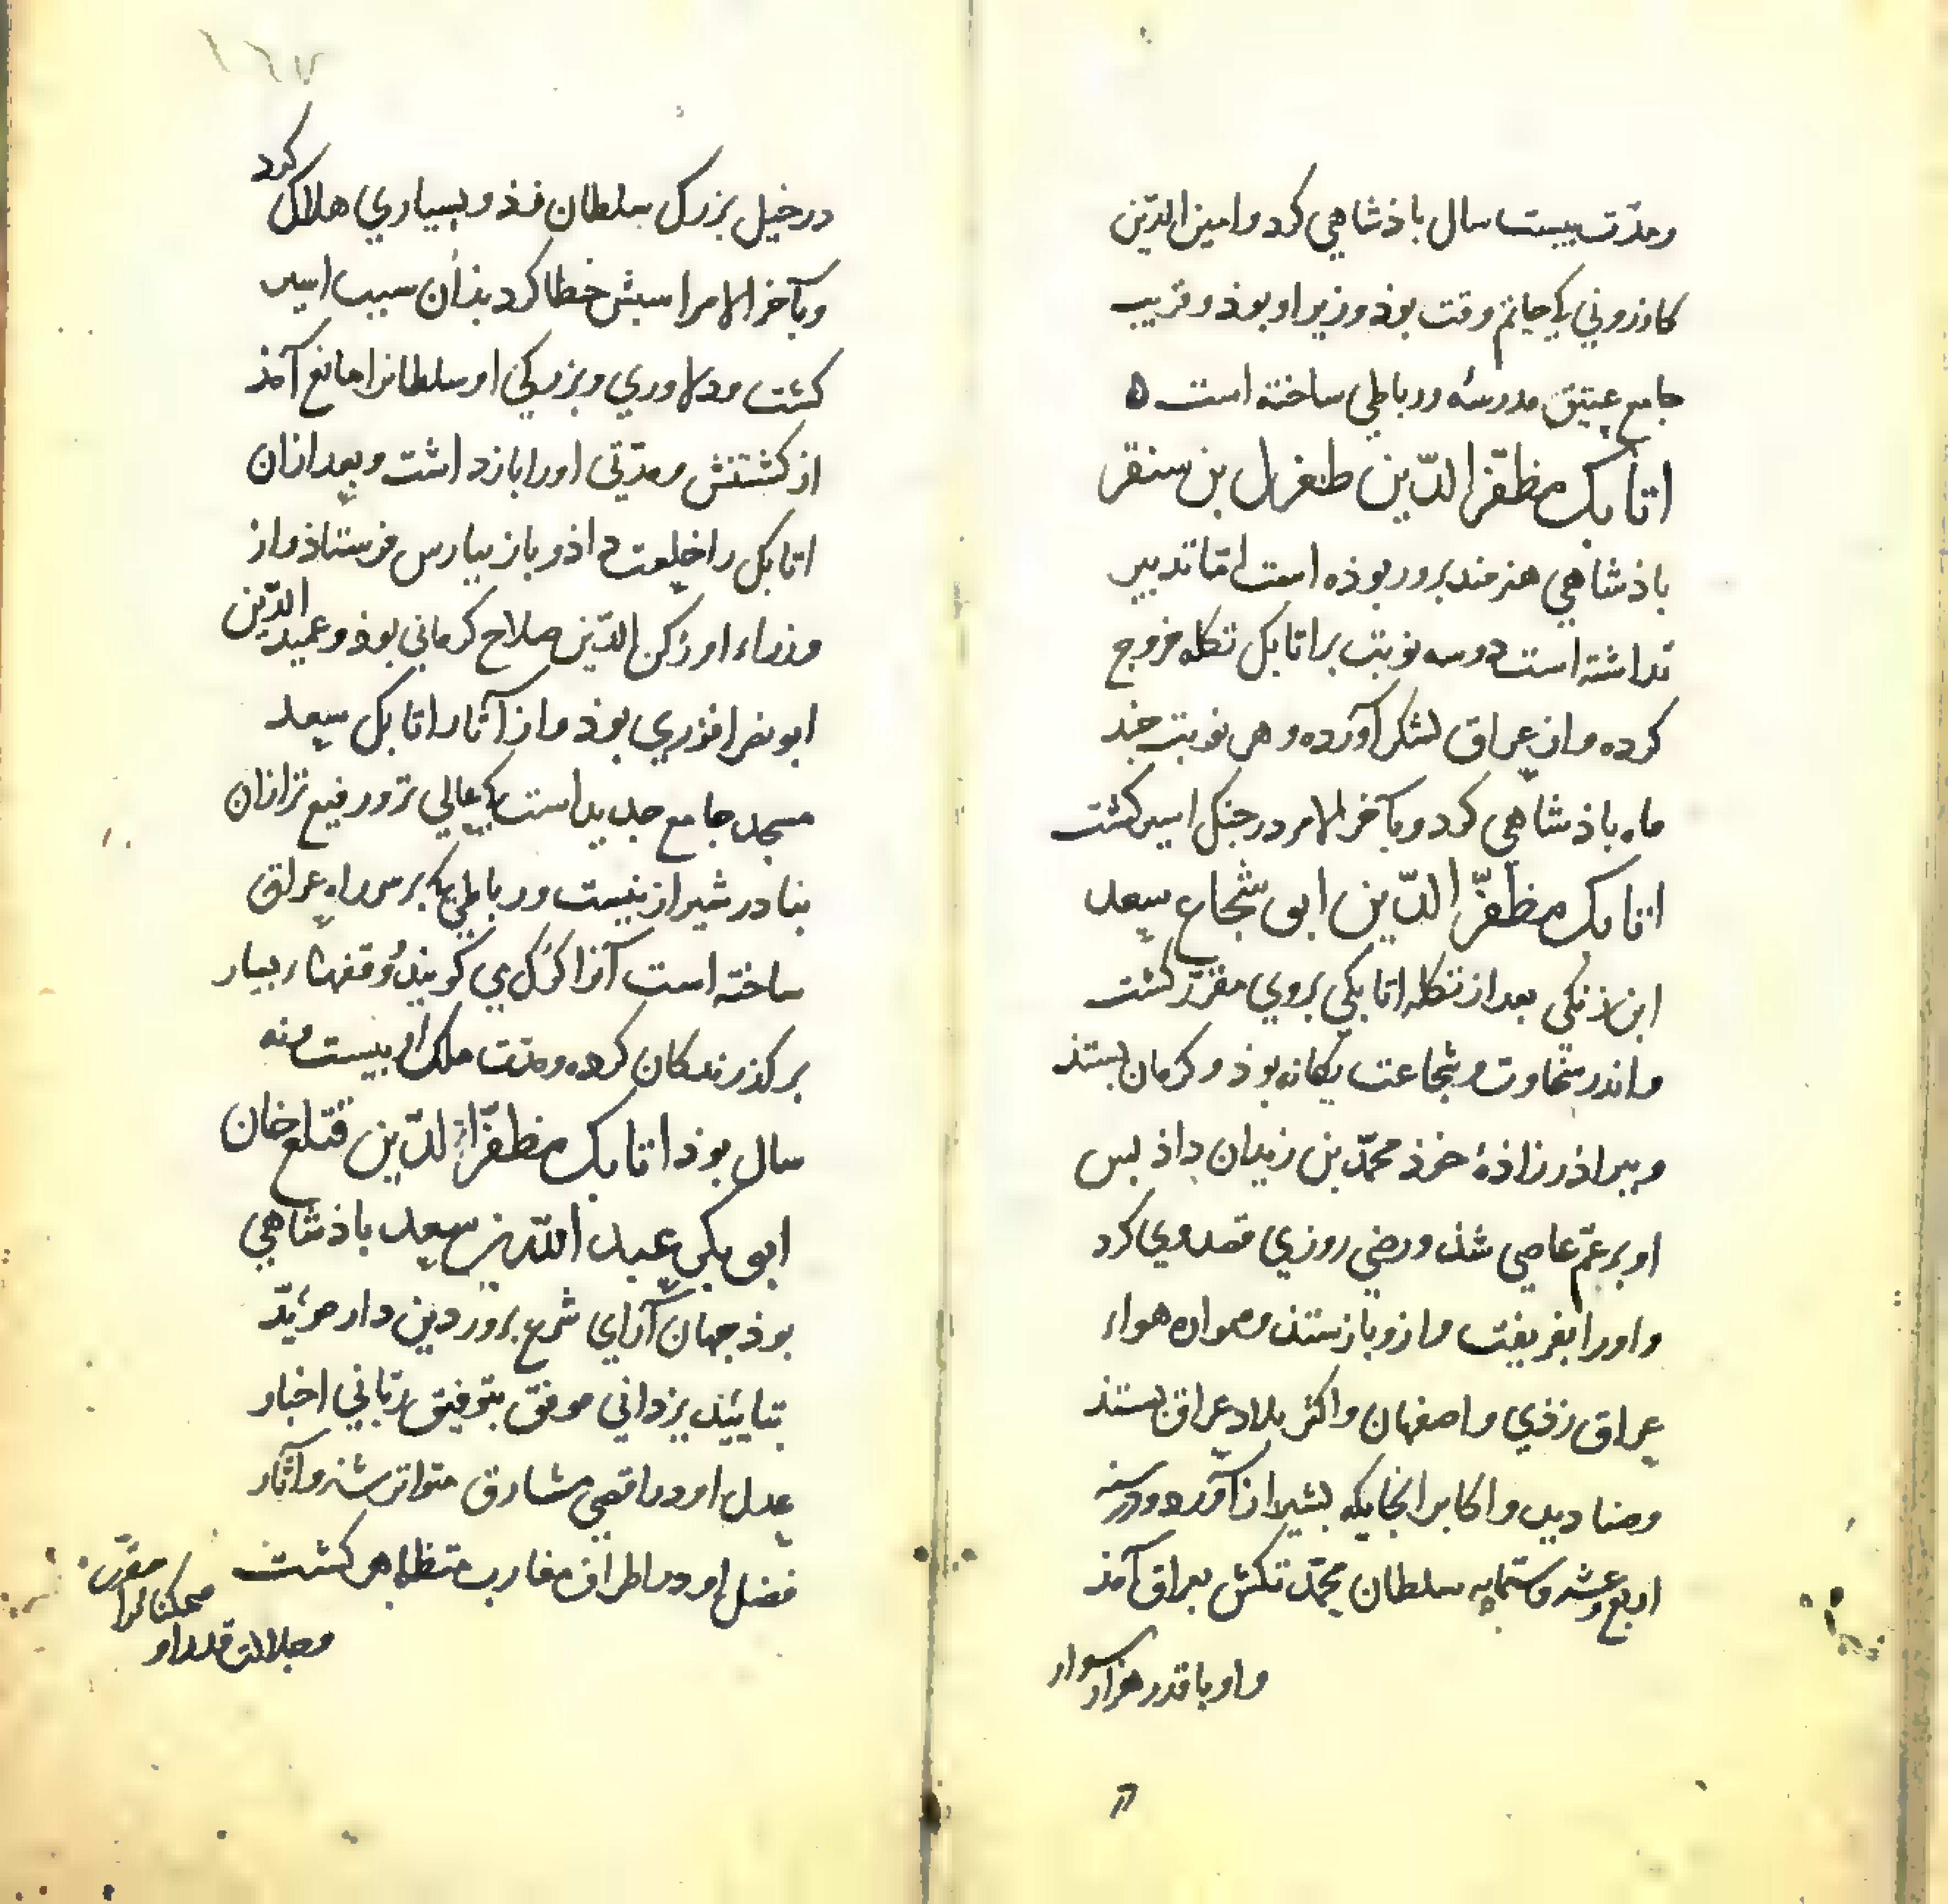 ومدّت بیست سال باذشاهي کرد وامین الدّین
کازروني کی حاتم وقت بوذ وزیر او بوذ و قریب
جامع عتیق مدرسهٔ ورباطي ساخته است ه
اتابک مظفّر الدّین طغرل بن سنقر
باذشاهي هنرمند برور بوذه است امّا تدبیر
نداشته است دو سه نوبت بر اتابک تکله خروج
کرده و از عراق لشکر آورده و هر نوبت جند
ماه باذشاهي کرد و بآخر الامر در جنک اسیر کشت
اتابک مظفّر الدّین ابو شجاع سعد
ابن زنکي بعد از تکله اتابکي بروي مقرّر کشت
واندر سخاوت و شجاعت یکانه بوذ و کرمان بستذ
و ببراذر زاذهٔ خوذ محمّد بن زیدان داذ بس
او بر عمّ عاصي شذ و رضي روزي قصد وي کرد
واورا بفریفت و ازو باز ستذ وهمواره هواء
عراق زذي و اصفهان و اکثر بلاد عراق بستذ
وصنادید و اکابر آنجایکه بشیراز آورد و در سنه
اربع وعشر وستمایه سلطان محمّد تکش بعراق آمذ
و او با قدر هزار سوار
١٦٧
در خیل بزرک سلطان فتذ و بسیاري هلاک کرد
وبآخر الامر اسبش خطا کرد بذان سبب اسیر
کشت ودلاوري و بزرکي او سلطانرا مانع آمذ
از کشتنش ومدّتي اورا باز داشت وبعد ازان
اتابک را خلعت داذ و باز ببارس فرستاذ و از
وزراء او رکن الدّین صلاح کرماني بوذ و عمید الدّین
ابو نصر افزري بوذ و از آثار اتابک سعد
مسجد جامع جدید است کی عالي تر و رفیع تر ازان
بنا در شیراز نیست ورباطي کی بر سر راه عراق
ساخته است آنرا کرک مي کویند و وقفهاء بسیار
بر کذرندکان کرده ومدّت ملک او بیست ونه
سال بوذ اتابک مظفّر الدّین قتلغ خان
ابو بکر عبد اللّه بن سعد باذشاهي
بوذ جهان آراي شرع برور دین دار مؤیّد
بتایید یزداني موفق بتوفیق ربّاني اخبار
عدل او در اقصي مشارق متواتر شذ و آثار
فضل او در اطراف مغارب متظاهر کشت
وجلالت قدر او ممکنانرا مقرّر